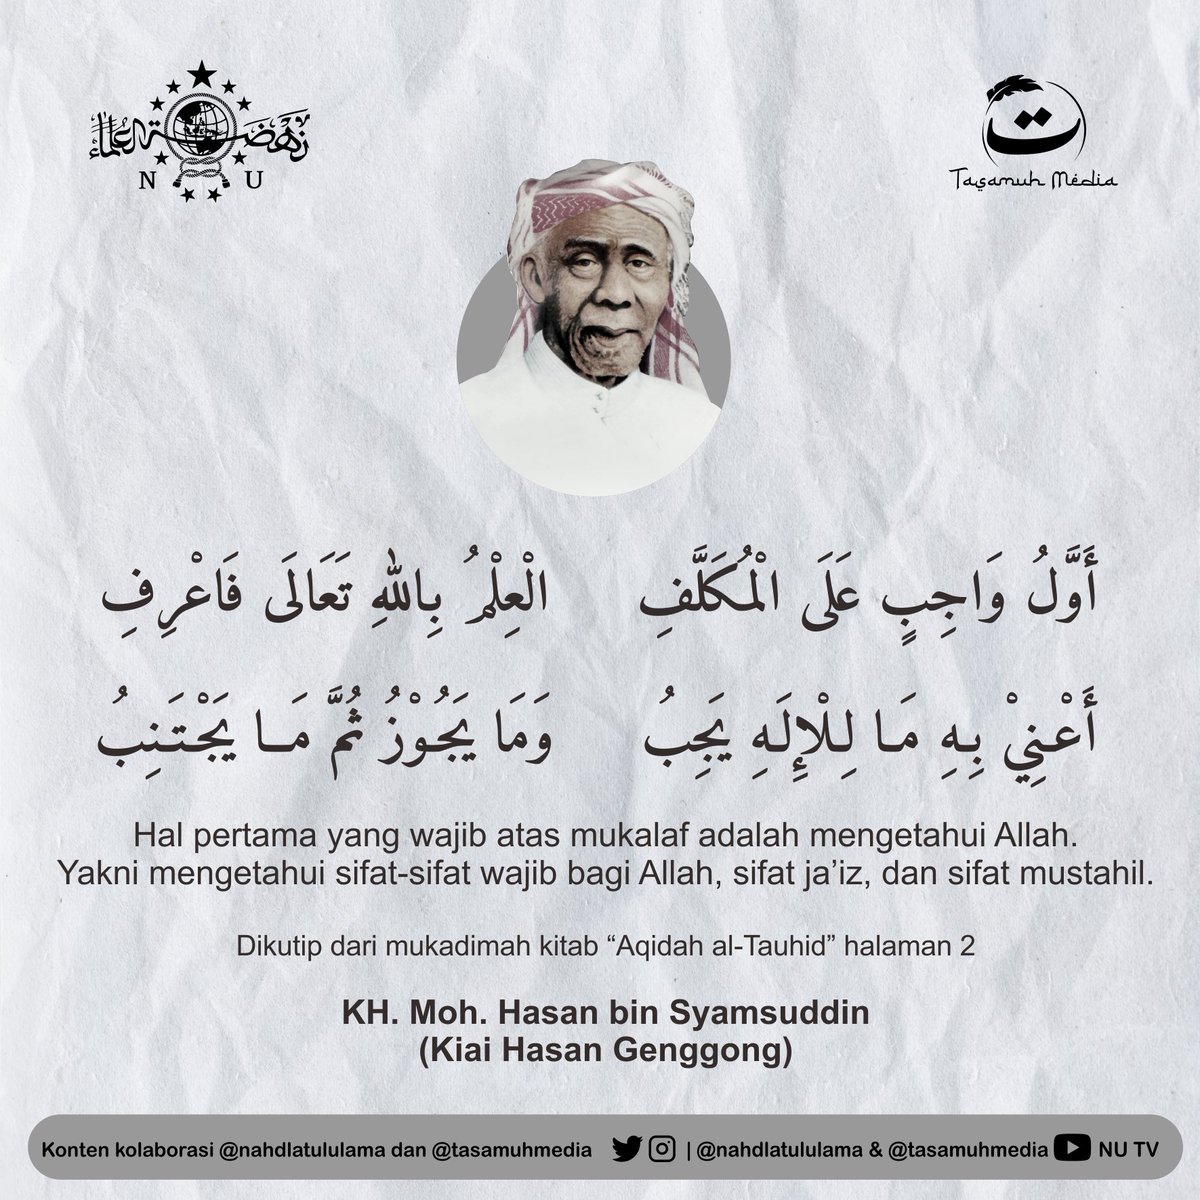 نهضة العلماء
N U
ت
Tasamuh Média
أَوَّلُ وَاجِبٍ عَلَى الْمُكَلَّفِ الْعِلْمُ بِاللهِ تَعَالَى فَاعْرِفِ
أَعْنِيْ بِهِ مَا لِلْإِلَهِ يَجِبُ وَمَا يَجُوْزُ ثُمَّ مَا يَجْتَنِبُ
Hal pertama yang wajib atas mukalaf adalah mengetahui Allah.
Yakni mengetahui sifat-sifat wajib bagi Allah, sifat ja’iz, dan sifat mustahil.
Dikutip dari mukadimah kitab “Aqidah al-Tauhid” halaman 2
KH. Moh. Hasan bin Syamsuddin
(Kiai Hasan Genggong)
Konten kolaborasi @nahdlatululama dan @tasamuhmedia | @nahdlatululama & @tasamuhmedia NU TV